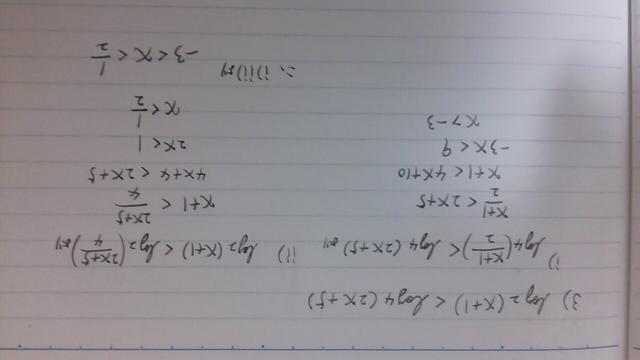 3) log₂(x+1) < log₄(2x+5)
i) log₄((x+1)/2) < log₄(2x+5) より
(x+1)/2 < 2x+5
x+1 < 4x+10
-3x < 9
x > -3
ii) log₂(x+1) < log₂((2x+5)/4) より
x+1 < (2x+5)/4
4x+4 < 2x+5
2x < 1
x < 1/2
∴ i) ii) より
-3 < x < 1/2